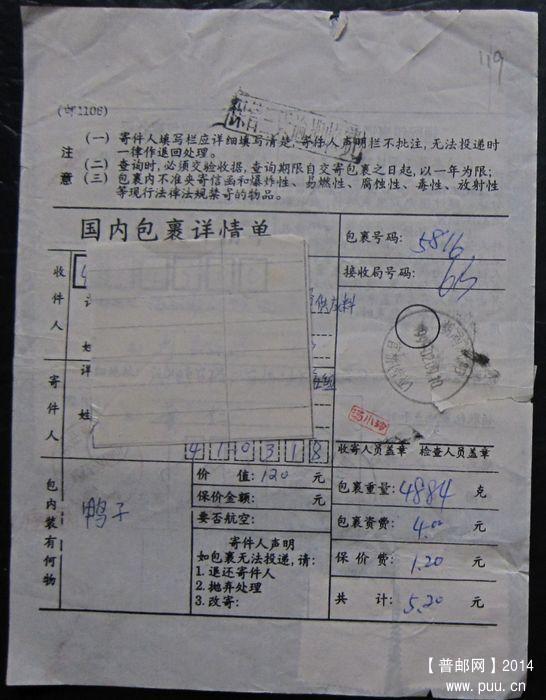 119
(邮1106)
注意
(一) 寄件人填写栏应详细填写清楚,寄件人声明栏不批注,无法投递时
一律作退回处理。
(二) 查询时,必须交验收据,查询期限自交寄包裹之日起,以一年为限;
(三) 包裹内不准夹寄信函和爆炸性、易燃性、腐蚀性、毒性、放射性
等现行法律法规禁寄的物品。
国内包裹详情单
包裹号码: 5816
接收局号码: 63
收件人
详
供应科
姓
寄件人
详
姓
410318
冯小玲
收寄人员盖章 检查人员盖章
包内装有何物
鸭子
价 值: 120 元
保价金额: 元
要否航空:
寄件人声明
如包裹无法投递,请:
1. 退还寄件人
2. 抛弃处理
3. 改寄:
包裹重量: 4884 克
包裹资费: 4.00 元
保 价 费: 1.20 元
共 计: 5.20 元
【普邮网】2014
www.puu.cn